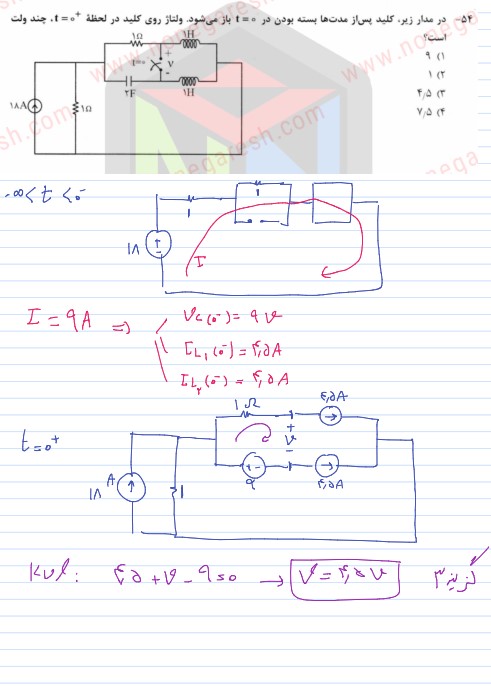 ۵۴- در مدار زیر، کلید پس‌از مدت‌ها بسته بودن در t = ۰ باز می‌شود. ولتاژ روی کلید در لحظهٔ t = ۰⁺، چند ولت
است؟
۱) ۹
۲) ۱
۳) ۴٫۵
۴) ۷٫۵
۱Ω ۱H
t=۰ + v -
۲F ۱H
۱۸A ۱Ω
nomegaresh.com
-∞ < t < ۰⁻
۱
۱
۱۸ + - I
I = ۹A ⇒ Vc(۰⁻) = ۹ v
IL₁(۰⁻) = ۴٫۵A
IL₂(۰⁻) = ۴٫۵A
t = ۰⁺
۱Ω + v - ۴٫۵A
+ - ۹ ۴٫۵A
۱۸ A ۱
KVL: ۴٫۵ + V - ۹ = ۰ → V = ۴٫۵ v گزینه ۳